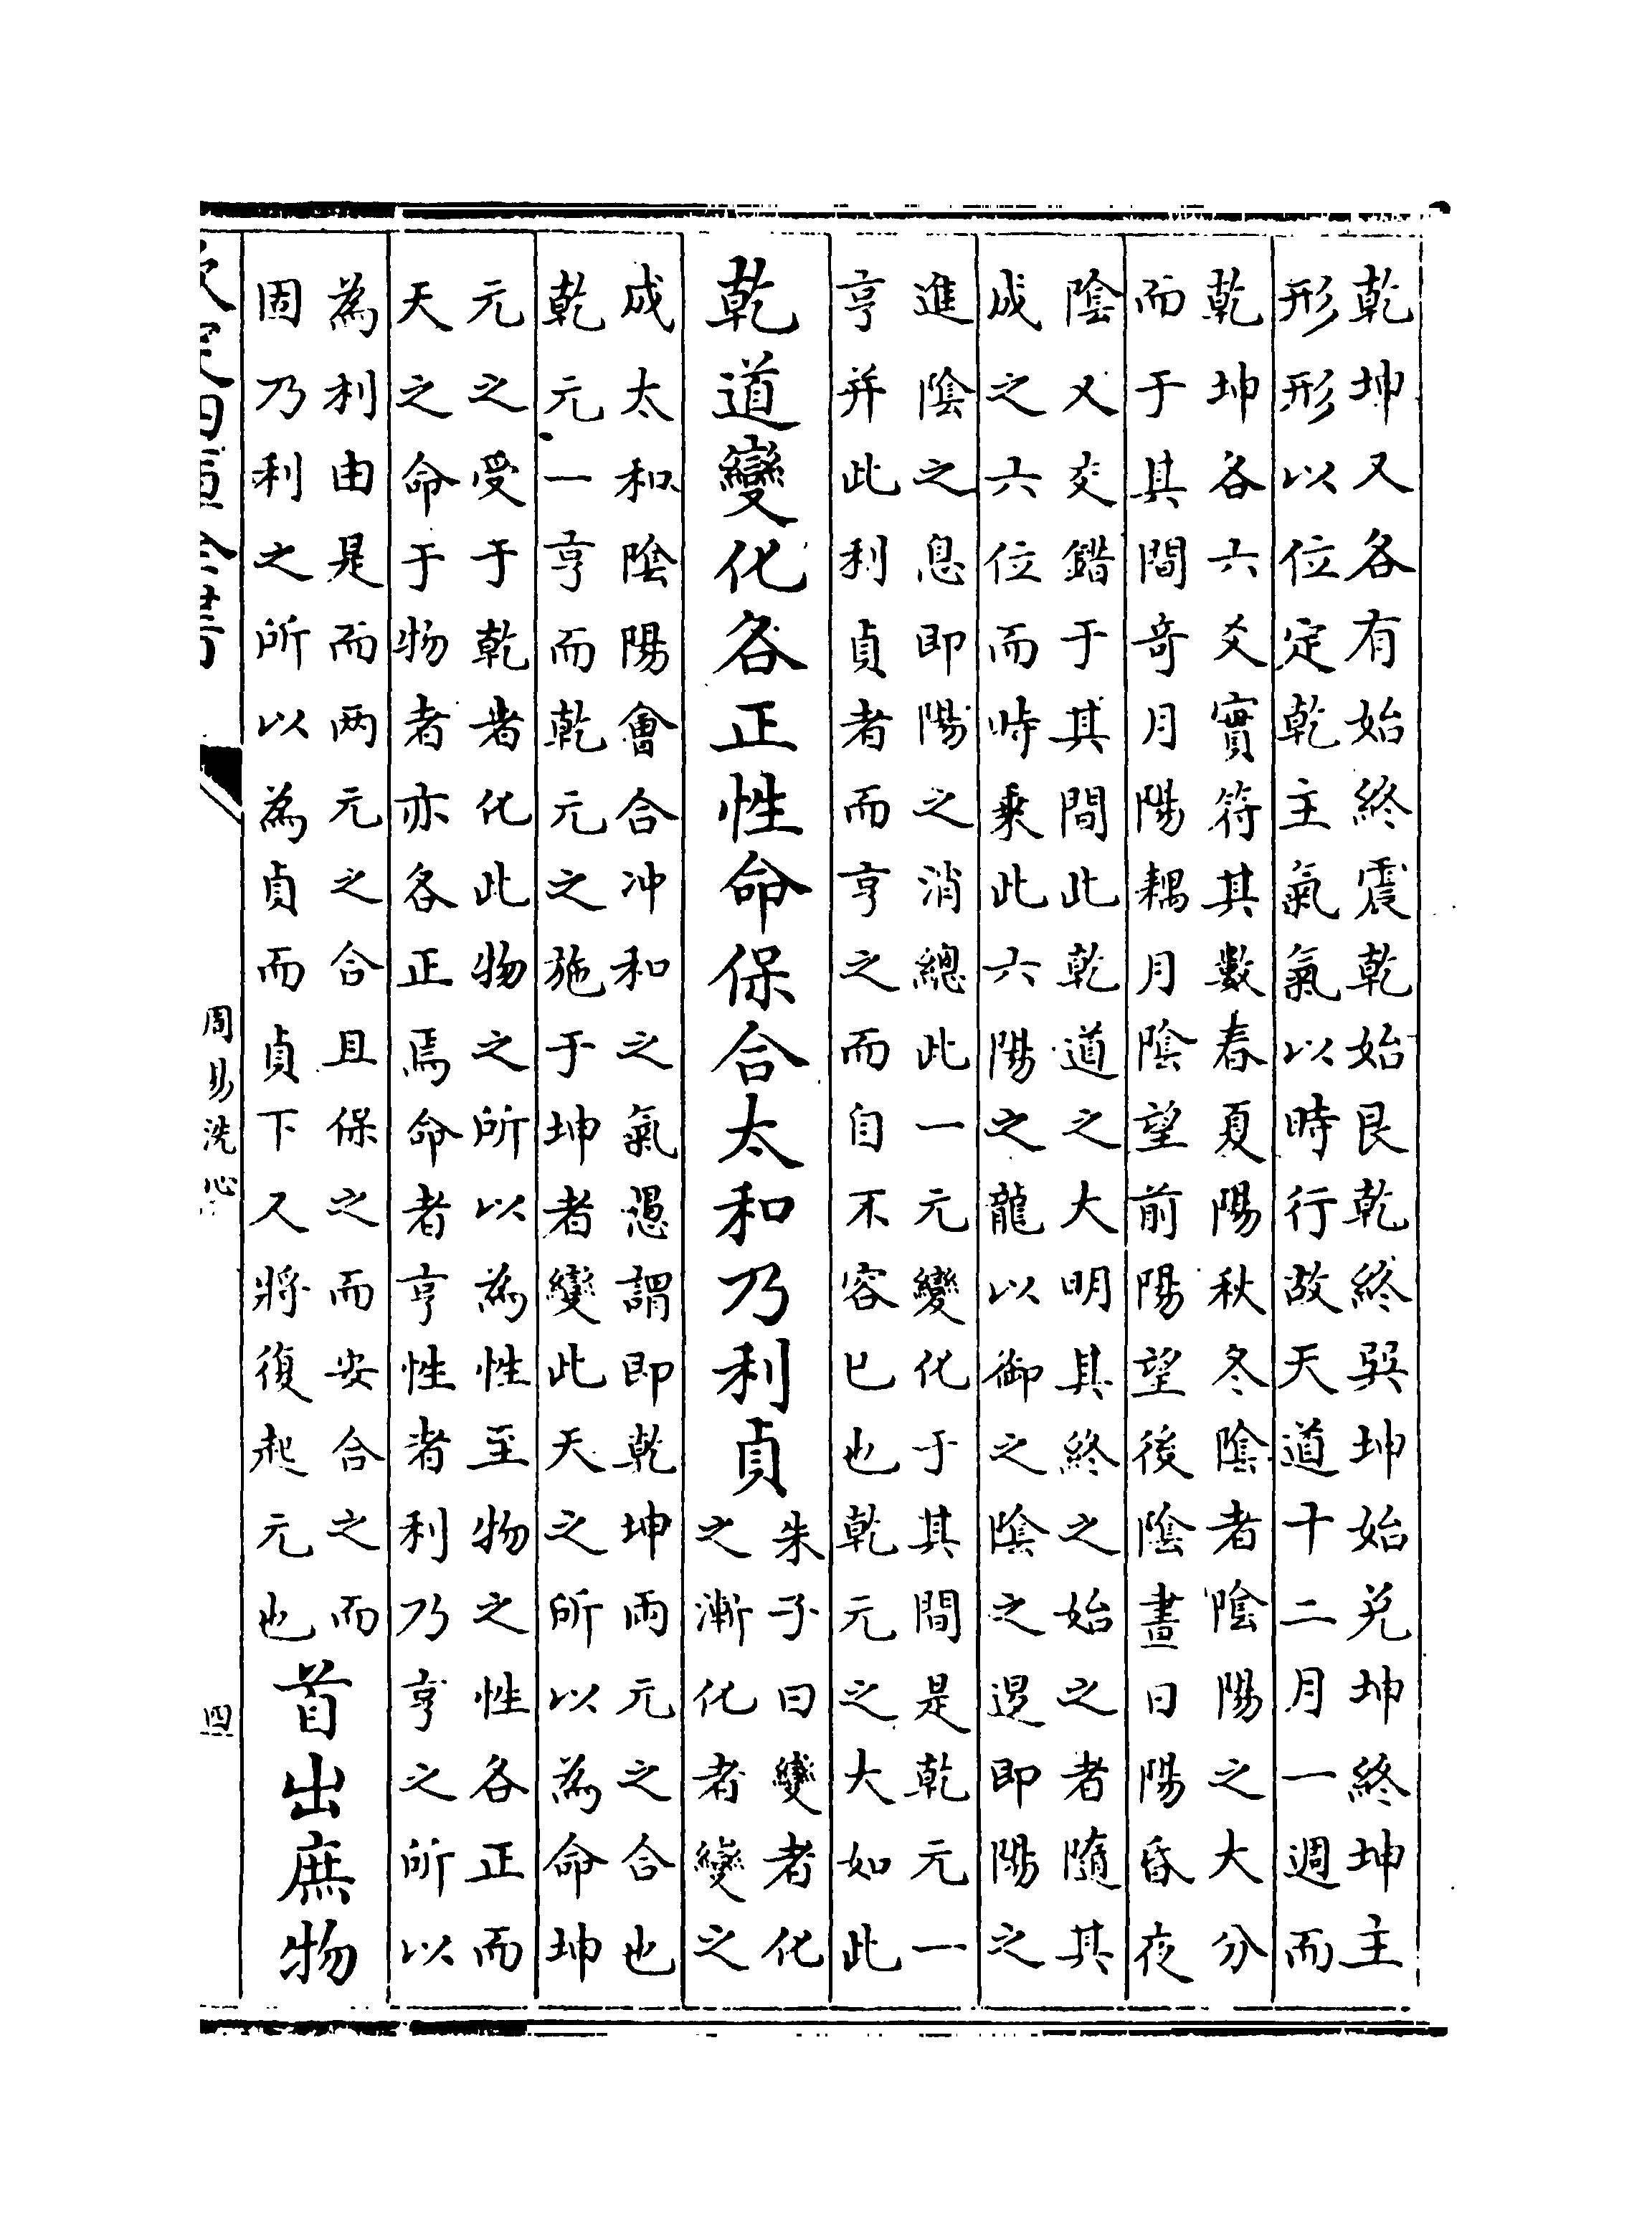 乾坤又各有始終震乾始艮乾終巽坤始兌坤終坤主
形形以位定乾主氣氣以時行故天道十二月一週而
乾坤各六爻實符其數春夏陽秋冬陰者陰陽之大分
而于其間奇月陽耦月陰望前陽望後陰晝日陽昏夜
陰又交錯于其間此乾道之大明其終之始之者隨其
成之六位而時乘此六陽之龍以御之陰之退即陽之
進陰之息即陽之消總此一元變化于其間是乾元一
亨并此利貞者而亨之而自不容已也乾元之大如此
乾道變化各正性命保合太和乃利貞
朱子曰變者化
之漸化者變之
成太和陰陽會合冲和之氣愚謂即乾坤兩元之合也
乾元一亨而乾元之施于坤者變此天之所以為命坤
元之受于乾者化此物之所以為性至物之性各正而
天之命于物者亦各正焉命者亨性者利乃亨之所以
為利由是而两元之合且保之而安合之而
固乃利之所以為貞而貞下又將復起元也
首出庶物
欽定四庫全書
周易洗心
四